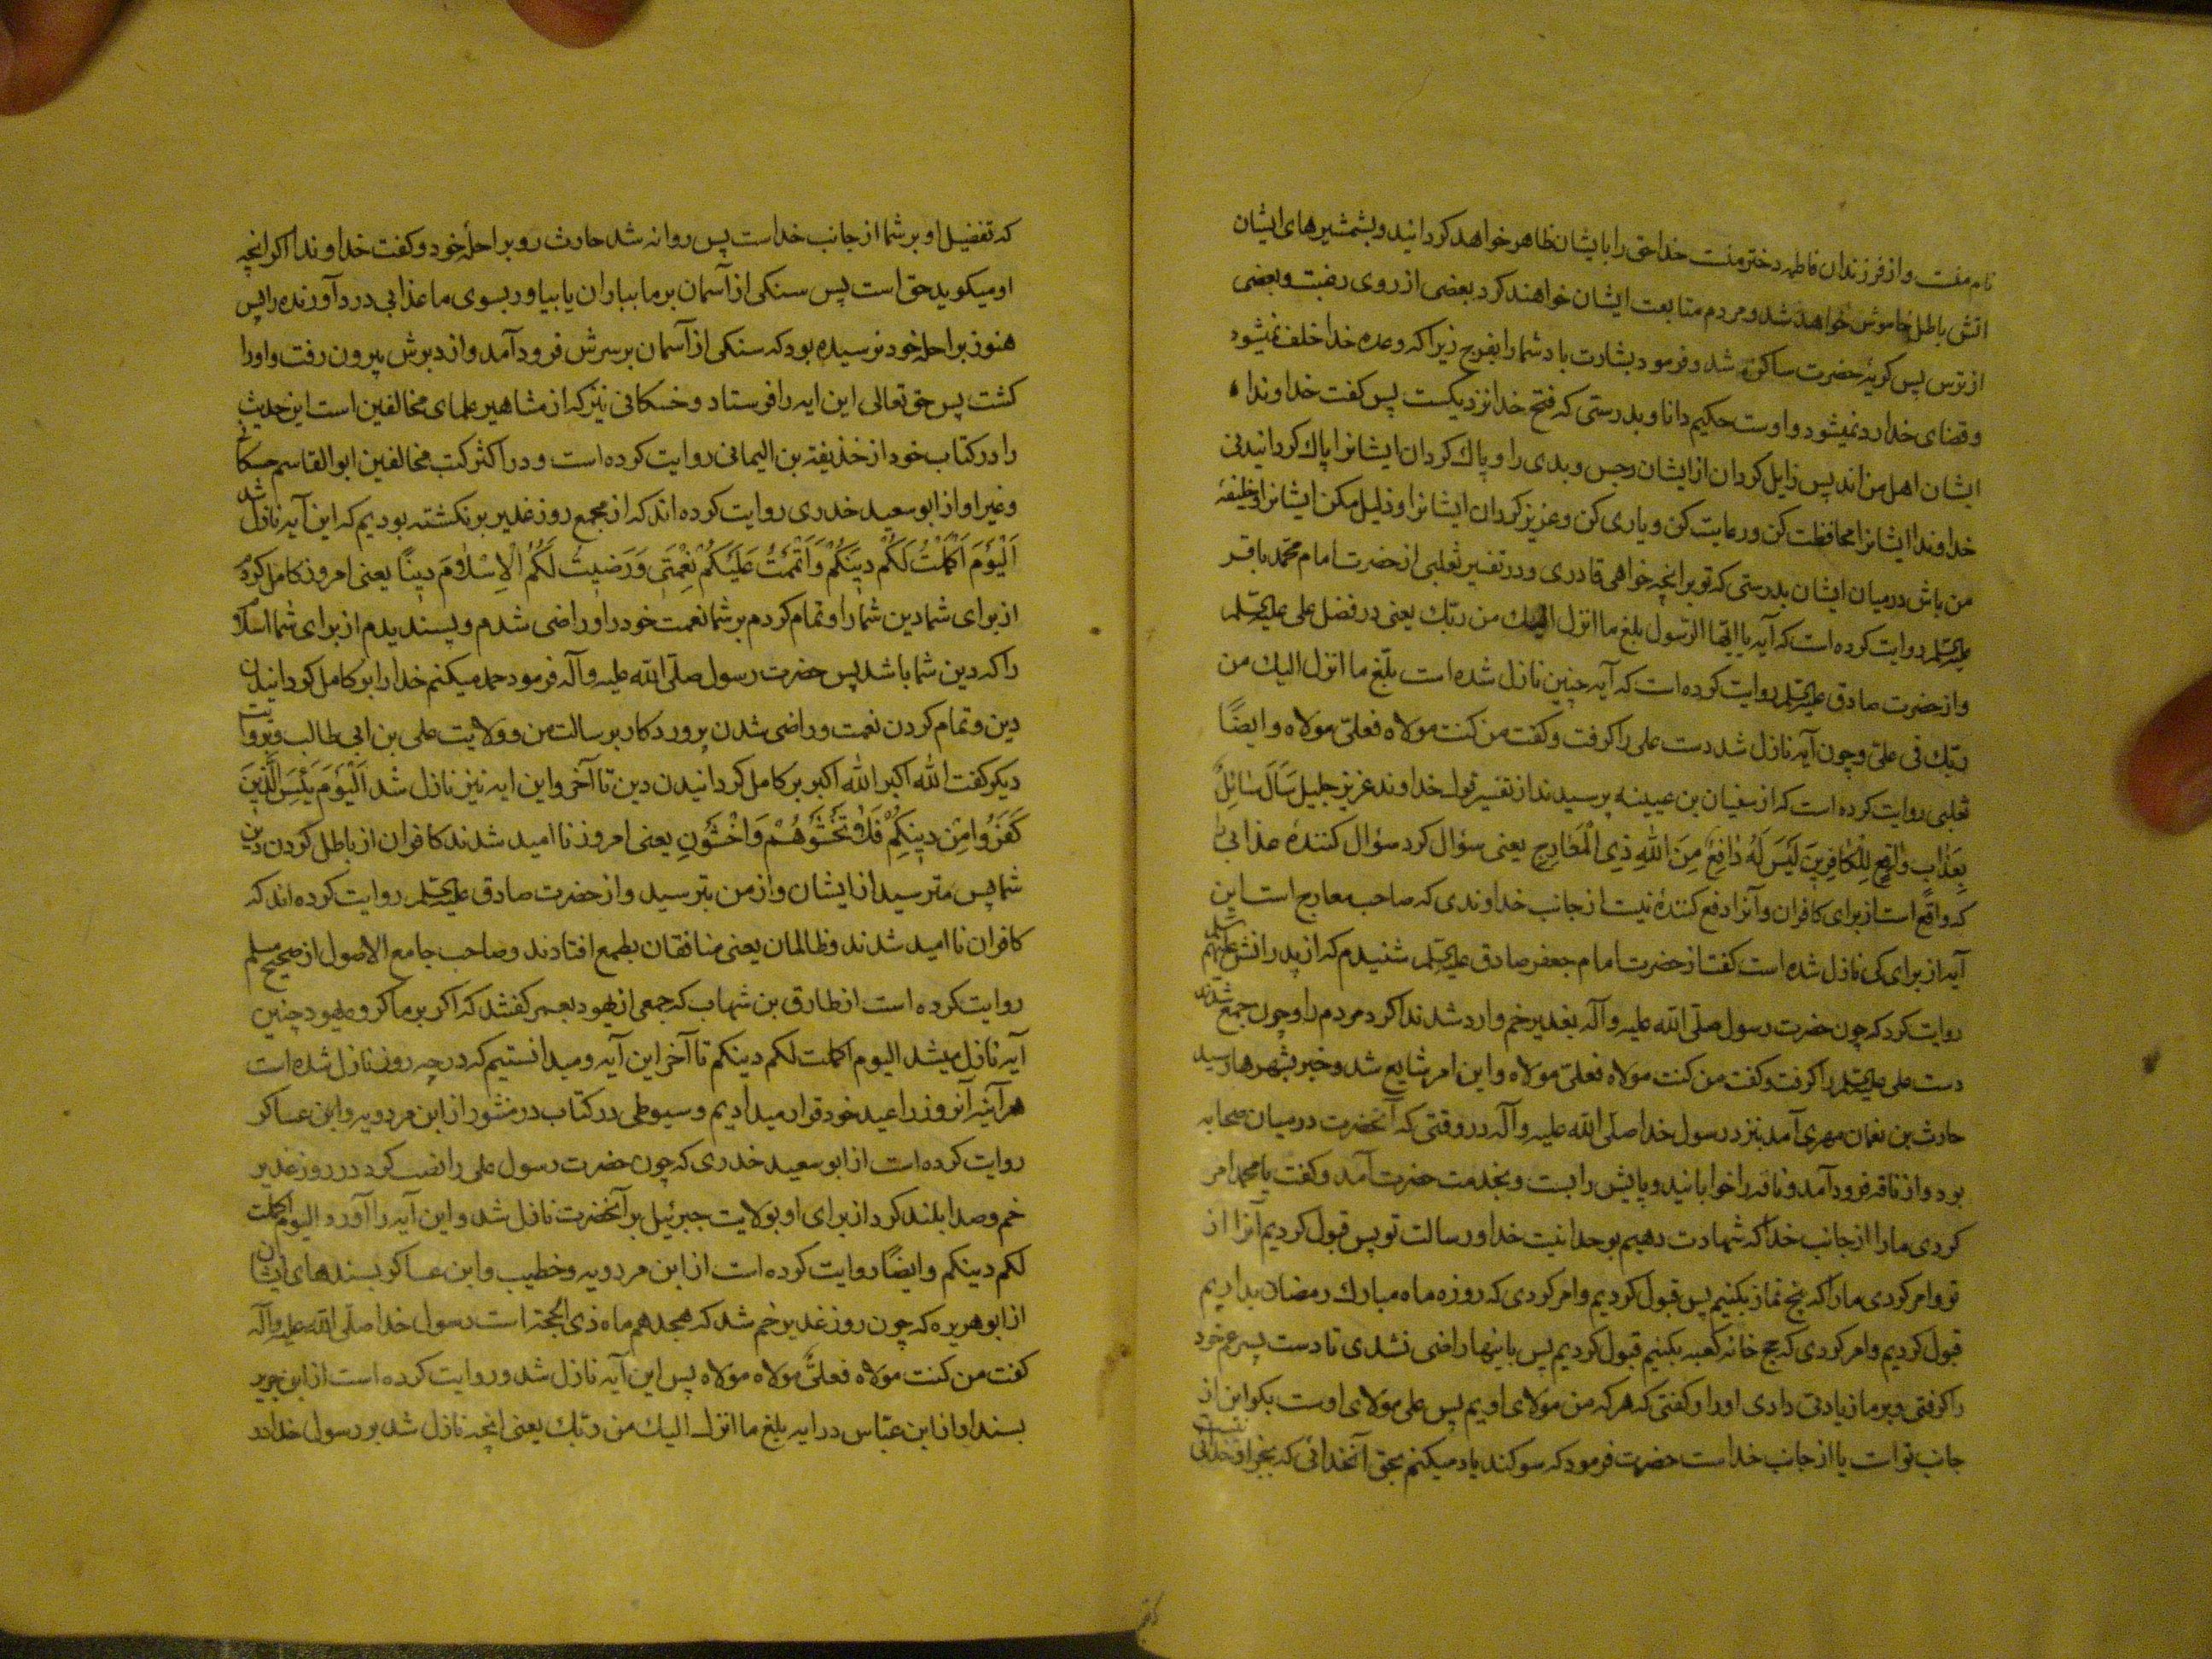 نام منست و از فرزندان فاطمه دختر منست خدا حق را بایشان ظاهر خواهد کردانید و بشمشیرهای ایشان
اتش باطل خاموش خواهد شد و مردم متابعت ایشان خواهند کرد بعضی از روی رغبت و بعضی
از ترس پس کریهٔ حضرت ساکن شد و فرمود بشارت باد شما را بفرج زیرا که وعده خدا خلف نمیشود
و قضای خدا رد نمیشود و اوست حکیم دانا و بدرستی که فتح خدا نزدیکست پس کفت خداوندا
ایشان اهل من اند پس زایل کردان از ایشان رجس و بدی را و پاک کردان ایشانرا پاک کردانیدنی
خداوندا ایشانرا محافظت کن و رعایت کن و یاری کن و عزیز کردان ایشانرا و ذلیل مکن ایشانرا و خلیفهٔ
من باش در میان ایشان بدرستی که تو بر انچه خواهی قادری و در تفسیر ثعلبی از حضرت امام محمد باقر
علیه‌السلم روایت کرده است که آیه یا ایها الرسول بلغ ما انزل الیک من ربک یعنی در فضل علی علیه‌السلم
و از حضرت صادق علیه‌السلم روایت کرده است که آیه چنین نازل شده است بلّغ ما انزل الیک من
ربّک فی علیّ و چون آیه نازل شد دست علی را کرفت و کفت من کنت مولاه فعلیّ مولاه و ایضًا
ثعلبی روایت کرده است که از سفیان بن عیینه پرسیدند از تفسیر قول خداوند عزیز جلیل سَأَلَ سَائِلٌ
بِعَذَابٍ وَاقِعٍ لِلْکَافِرِینَ لَیْسَ لَهُ دَافِعٌ مِنَ اللهِ ذِی الْمَعَارِجِ یعنی سؤال کرد سؤال کنندهٔ عذابی را
که واقع است از برای کافران و آنرا دفع کنندهٔ نیست از جانب خداوندی که صاحب معارج است این
آیه از برای کی نازل شده است کفت از حضرت امام جعفر صادق علیه‌السلم شنیدم که از پدرانش علیهم السلم
روایت کرد که چون حضرت رسول صلّی الله علیه و آله بغدیر خم وارد شد ندا کرد مردم را و چون جمع شدند
دست علی علیه‌السلم را کرفت و کفت من کنت مولاه فعلیّ مولاه و این امر شایع شد و خبر بشهرها رسید
حارث بن نعمان فهری آمد بنزد رسول خدا صلّی الله علیه و آله در وقتی که آنحضرت در میان صحابه
بود و از ناقه فرود آمد و ناقه را خوابانید و پایش را بست و بخدمت حضرت آمد و کفت یا محمد امر
کردی ما را از جانب خدا که شهادت دهیم بوحدانیت خدا و رسالت تو پس قبول کردیم آنرا از
تو و امر کردی ما را که پنج نماز بکنیم پس قبول کردیم و امر کردی که روزه ماه مبارک رمضان بداریم
قبول کردیم و امر کردی که حج خانه کعبه بکنیم قبول کردیم پس باینها راضی نشدی تا دست پسر عم خود
را کرفتی و بر ما زیادتی دادی او را و کفتی که هر که من مولای اویم پس علی مولای اوست بکو این از
جانب تو است یا از جانب خداست حضرت فرمود که سوکند یاد میکنم بحق آنخدائی که بجز او خدائی نیست
که تفضیل او بر شما از جانب خداست پس روانه شد حارث رو براحلهٔ خود و کفت خداوندا اکر انچه
او میکوید حق است پس سنکی از آسمان بر ما بباران یا بیاور بسوی ما عذابی درد آورنده را پس
هنوز براحلهٔ خود نرسیده بود که سنکی از آسمان بر سرش فرود آمد و از دبرش بیرون رفت و او را
کشت پس حق تعالی این ایه را فرستاد و حسکانی نیز که از مشاهیر علمای مخالفین است این حدیث
را در کتاب خود از حذیفة بن الیمانی روایت کرده است و در اکثر کتب مخالفین ابوالقاسم حسکانی
و غیر او از ابو سعید خدری روایت کرده اند که از مجمع روز غدیر بر نکشته بودیم که این آیه نازل شد
اَلْیَوْمَ اَکْمَلْتُ لَکُمْ دِینَکُمْ وَاَتْمَمْتُ عَلَیْکُمْ نِعْمَتِی وَرَضِیتُ لَکُمُ الْاِسْلَامَ دِینًا یعنی امروز کامل کردم
از برای شما دین شما را و تمام کردم بر شما نعمت خود را و راضی شدم و پسندیدم از برای شما اسلام
را که دین شما باشد پس حضرت رسول صلّی الله علیه و آله فرمود حمد میکنم خدا را بر کامل کردانیدن
دین و تمام کردن نعمت و راضی شدن پروردکار برسالت من و ولایت علی بن ابی طالب و بروایت
دیکر کفت الله اکبر الله اکبر بر کامل کردانیدن دین تا آخر و این ایه نیز نازل شد اَلْیَوْمَ یَئِسَ الَّذِینَ
کَفَرُوا مِنْ دِینِکُمْ فَلَا تَخْشَوْهُمْ وَاخْشَوْنِ یعنی امروز نا امید شدند کافران از باطل کردن دین
شما پس مترسید از ایشان و از من بترسید و از حضرت صادق علیه‌السلم روایت کرده اند که
کافران نا امید شدند و ظالمان یعنی منافقان بطمع افتادند و صاحب جامع الاصول از صحیح مسلم
روایت کرده است از طارق بن شهاب که جمعی از یهود بعمر کفتند که اکر بر ما کروه یهود چنین
آیه نازل میشد الیوم اکملت لکم دینکم تا آخر این آیه و میدانستیم که در چه روز نازل شده است
هر آینه آنروز را عید خود قرار میدادیم و سیوطی در کتاب در منثور از ابن مردویه و ابن عساکر
روایت کرده است از ابو سعید خدری که چون حضرت رسول علی را نصب کرد در روز غدیر
خم و صدا بلند کرد از برای او بولایت جبرئیل بر آنحضرت نازل شد و این آیه را آورد الیوم اکملت
لکم دینکم و ایضًا روایت کرده است از ابن مردویه و خطیب و ابن عساکر بسندهای ایشان
از ابو هریره که چون روز غدیر خم شد که هجدهم ماه ذی الحجة است رسول خدا صلّی الله علیه و آله
کفت من کنت مولاه فعلیٌّ مولاه مولاه پس این آیه نازل شد و روایت کرده است از ابن جریر
بسند او از ابن عبّاس در ایه بلغ ما انزل الیک من ربّک یعنی انچه نازل شد بر رسول خدا در